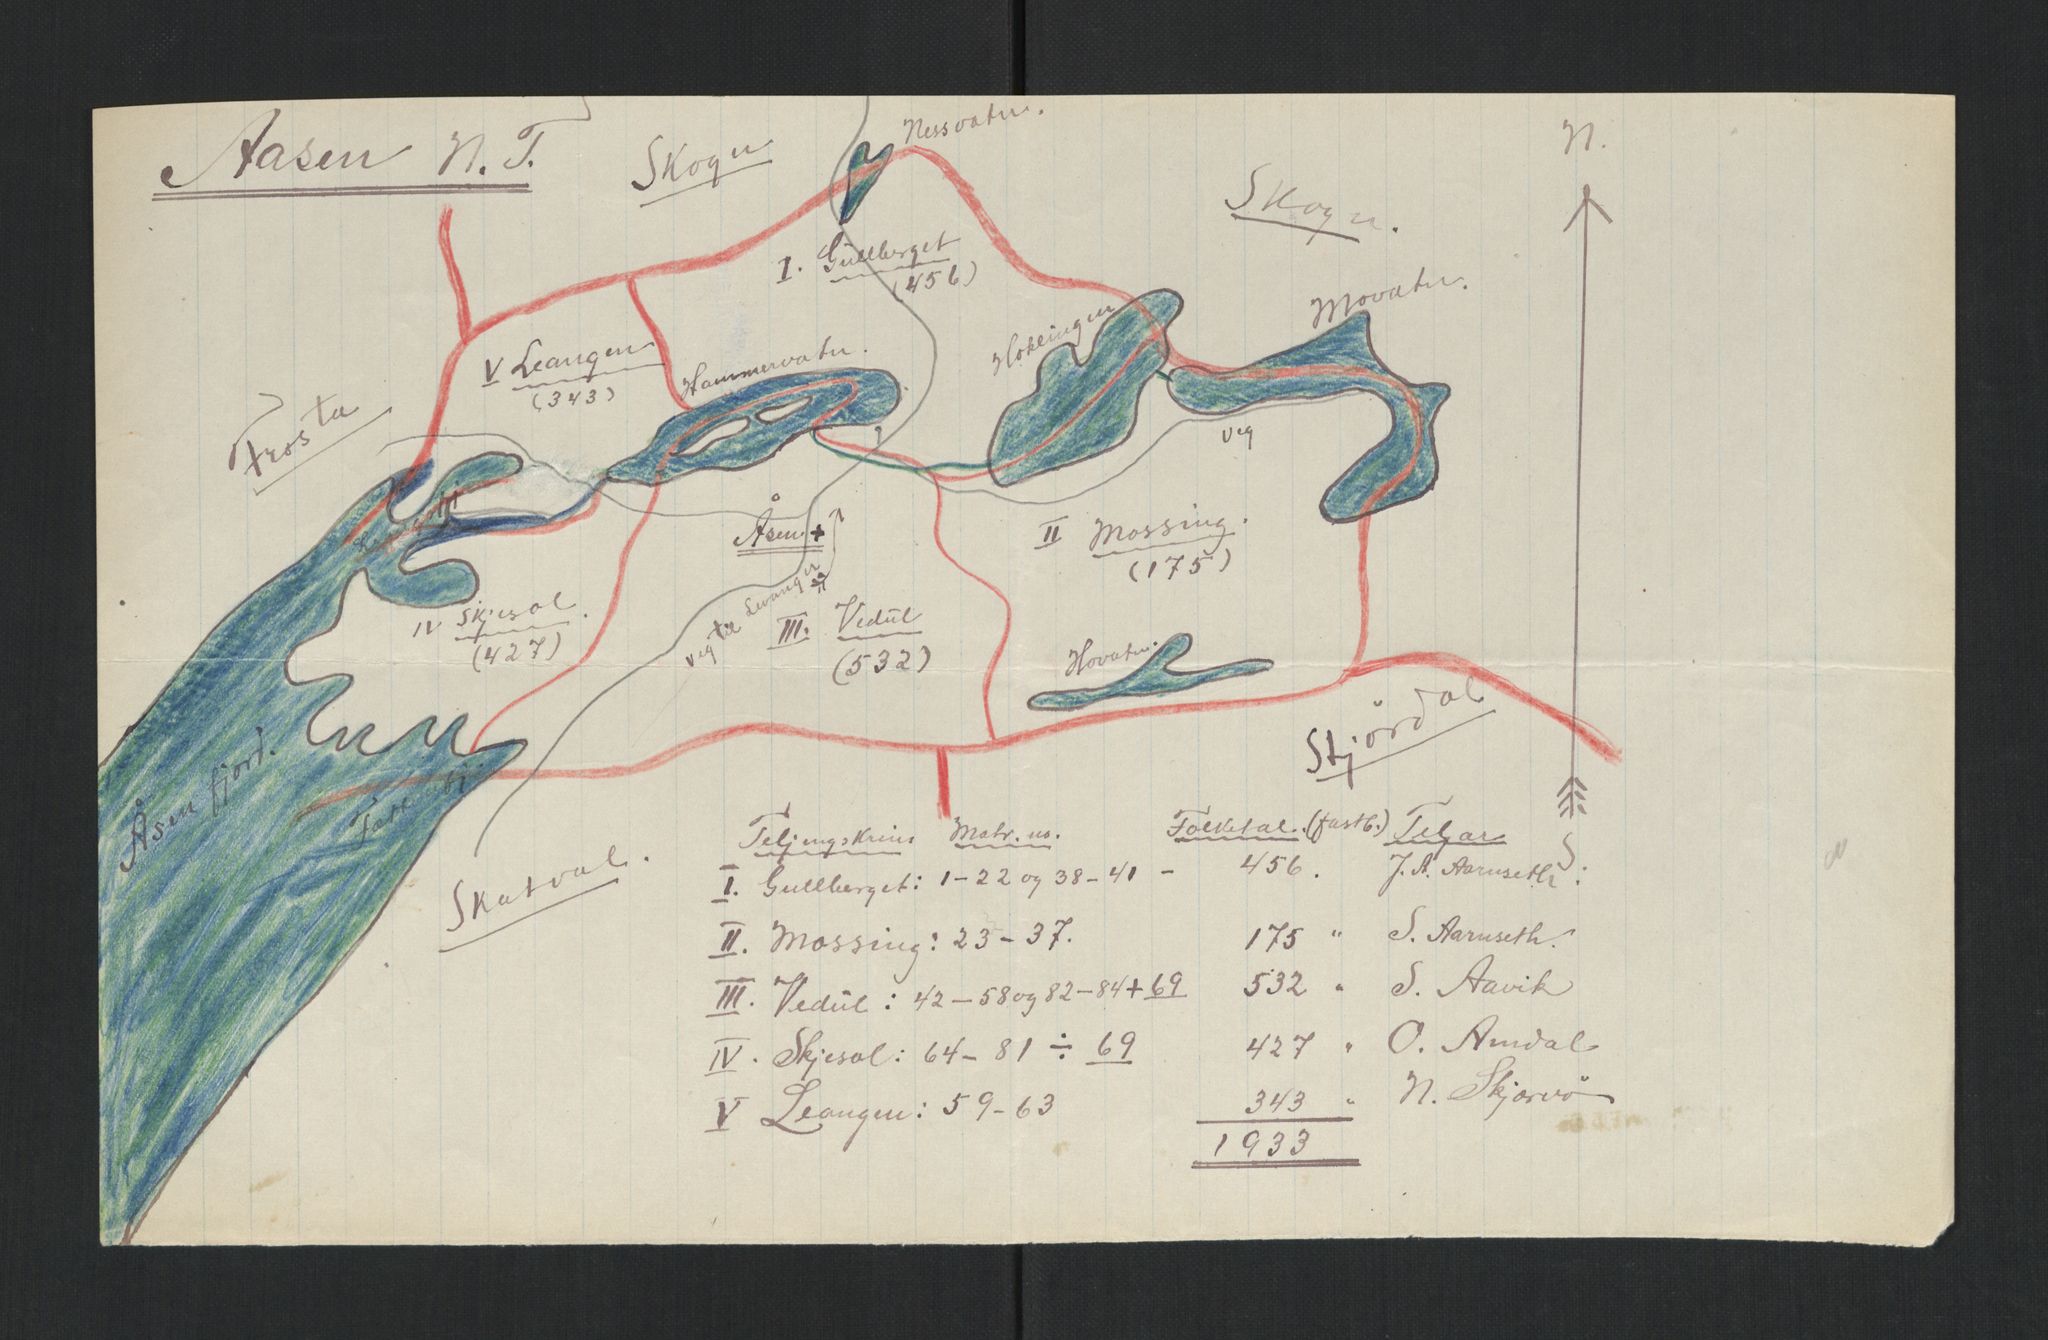 Aasen N. T.
Skogn
Nessvatn.
N.
Skogn.
I. Gullberget
(456)
Movatn.
Hoklingen
V Leangen
(343)
Hammervatn.
Frosta
Veg
Åsen +
II Mossing.
(175)
Veg til Levanger
IV Skjesol.
(427)
III. Vedul
(532)
Hovatn.
Stjördal
Åsenfjord.
Skatval.
S.
Teljingskrins Matr. no. Folketal. (fastb.) Teljar
I. Gullberget: 1-22 og 38-41 - 456. J. A. Aarnseth:
II. Mossing: 23-37. 175 " S. Aarnseth.
III. Vedul: 42-58 og 82-84+69 532 " S. Aavik
IV. Skjesol: 64-81 ÷ 69 427 " O. Amdal
V Leangen: 59-63 343 " N. Skjervö
1933